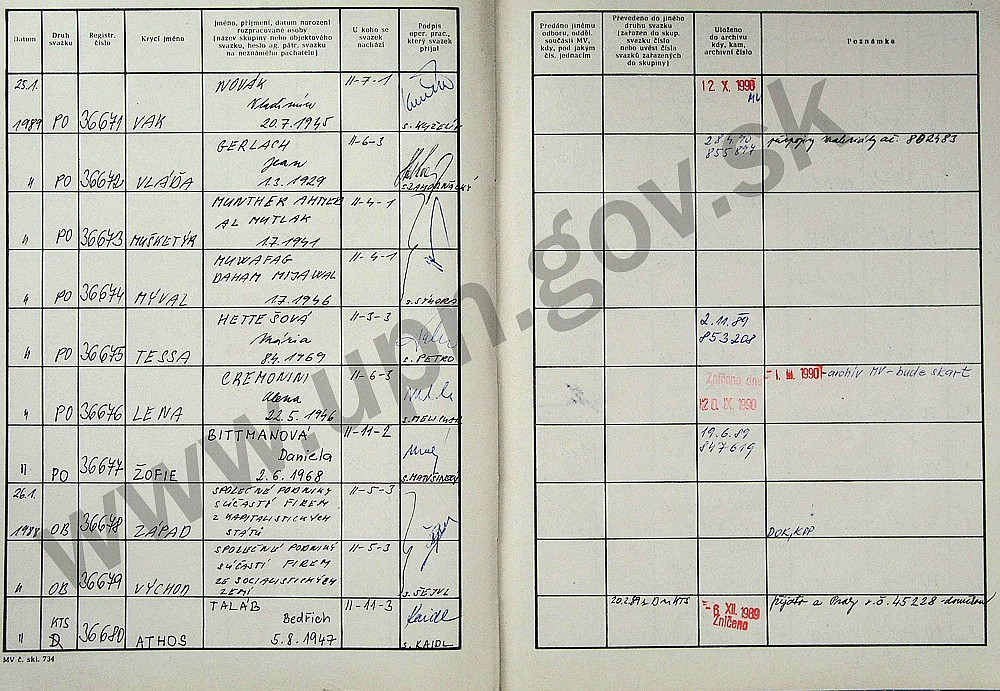 Datum
Druh
svazku
Registr.
číslo
Krycí jméno
Jméno, příjmení, datum narození
rozpracované osoby
(název skupiny nebo objektového
svazku, heslo ag. pátr. svazku
na neznámého pachatele)
U koho se
svazek
nachází
Podpis
oper. prac.,
který svazek
přijal
Předáno jinému
odboru, odděl.
součásti MV,
kdy, pod jakým
čís. jednacím
Převedeno do jiného
druhu svazku
(zařazen do skup.
svazku číslo
nebo uvést čísla
svazků zařazených
do skupiny)
Uloženo
do archivu
kdy, kam,
archivní číslo
Poznámka
25.1.
1989 PO 36671 VAK
NOVÁK
Vladimír
20.7.1945
II-7-1
12 X. 1990
" PO 36672 VLÁĎA
GERLACH
Jean
1.3.1929
II-6-3
855894
802483
" PO 36673 MUŠKETÝR
MUNTHER AHMED
AL MUTLAK
1.7.1941
II-4-1
" PO 36674 MÝVAL
MUWAFAG
DAHAM MIJAWAL
1.7.1946
II-4-1
s. SÝKORA
" PO 36675 TESSA
HETTEŠOVÁ
Mária
8.4.1969
II-3-3
s. PETRO
2.11.89
853208
" PO 36676 LENA
CREMONINI
Alena
22.5.1946
II-6-3
Zničeno dne
20. IX. 1990
- 1. III. 1990 - archiv MV - bude skart
" PO 36677 ŽOFIE
BITTMANOVÁ
Daniela
2.6.1968
II-11-2
19.6.89
847619
26.1.
1988 OB 36678 ZÁPAD
SPOLEČNÉ PODNIKY
SÚČASTÍ FIREM
Z KAPITALISTICKÝCH
STÁTŮ
II-5-3
" OB 36679 VÝCHOD
SPOLEČNÉ PODNIKY
SÚČASTÍ FIREM
ZE SOCIALISTICKÝCH
ZEMÍ
II-5-3
s. ŠEJVL
" KTS 36680 ATHOS
TALÁB
Bedřich
5.8.1947
II-11-3
Kaidl
s. KAIDL
- 6. XII. 1989
Zničeno
45228
MV č. skl. 734
www.upn.gov.sk